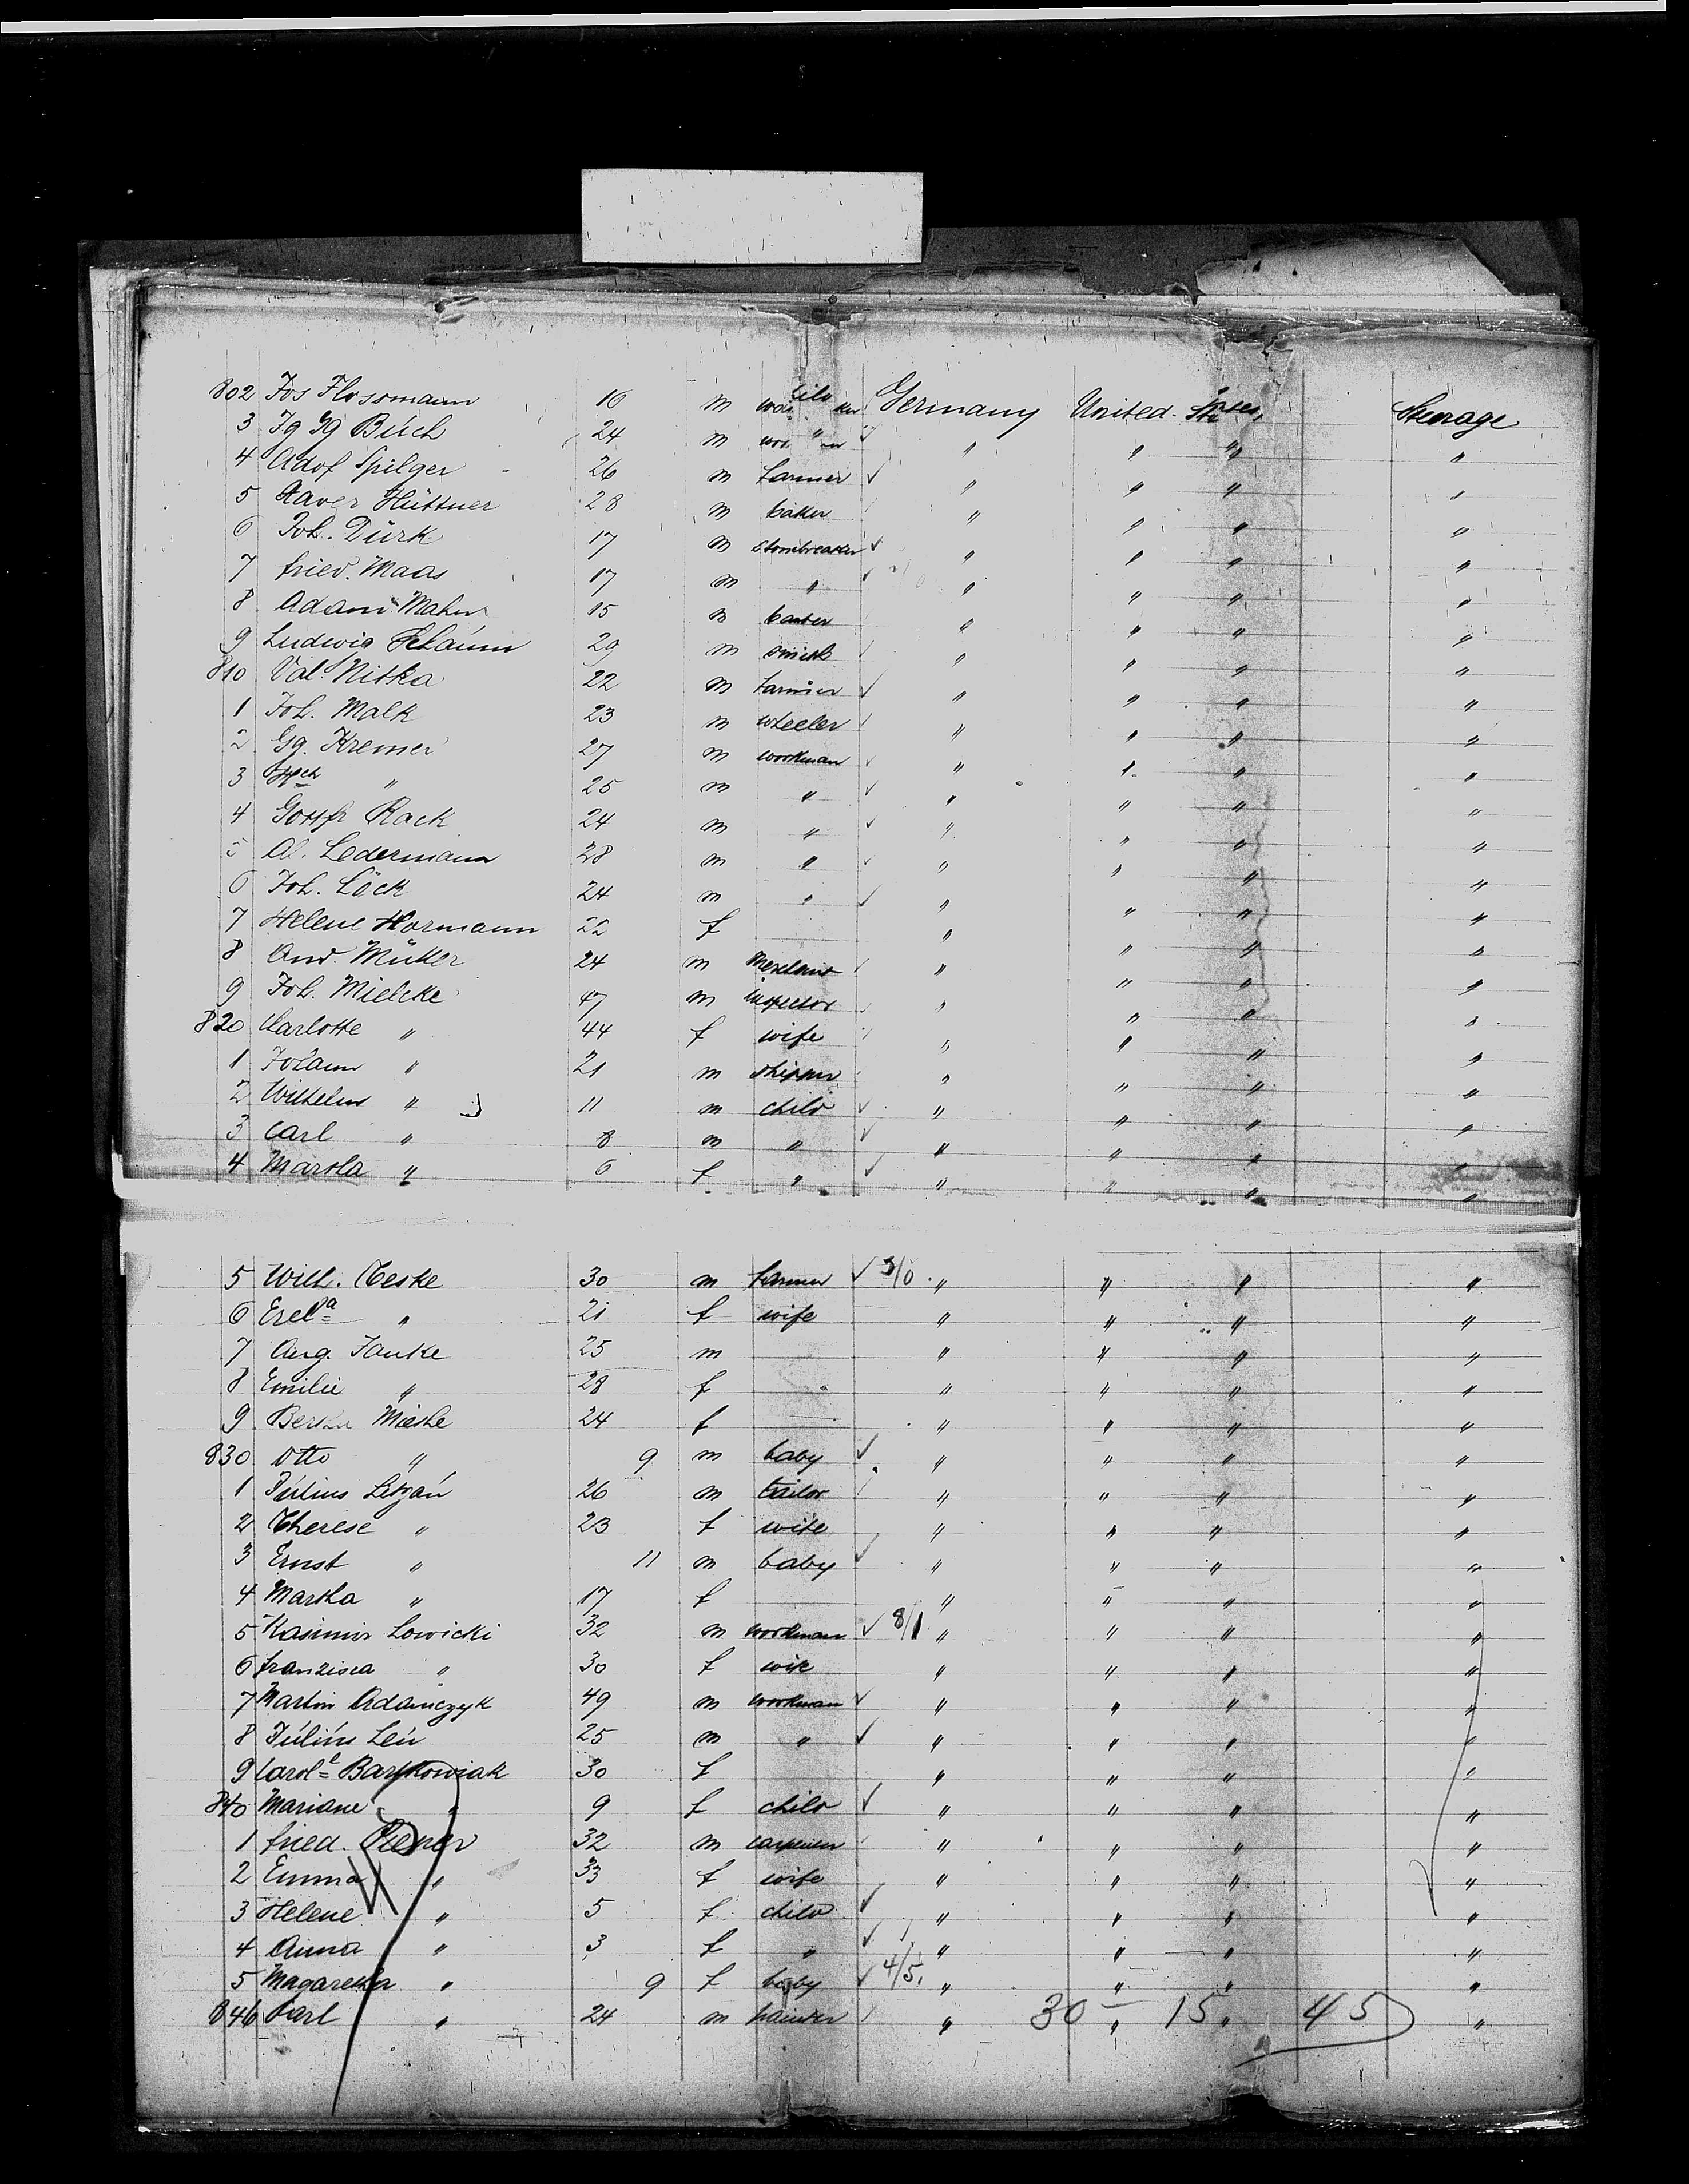 802 Jos Flossmann 16 m Germany United States Steerage
3 Jg Gg Büch 24 m " " " " "
4 Adof Spilger 26 m farmer ✓ " " " "
5 Xaver Hüttner 28 m baker " " " "
6 Joh. Dürk 17 m stonebreaker ✓ " " " "
7 fried. Maas 17 m " ✓ " " " "
8 Adam Maher 15 m " " " "
9 Ludwig Schaum 29 m smith " " " "
810 Val. Nitka 22 m farmer ✓ " " " "
1 Joh. Malk 23 m wheeler " " " "
2 Gg. Kremer 27 m workman ✓ " " " "
3 " 25 m " ✓ " " " "
4 Gottfr Rack 24 m " ✓ " " " "
5 Al. Ledermann 28 m " ✓ " " " "
6 Joh. Läck 24 m " ✓ " " " "
7 Helene Hormann 22 f " " " "
8 And Müller 24 m merchant " " " "
9 Joh. Mielcke 47 m inspector " " " "
820 Charlotte " 44 f wife " " " "
1 Johann " 21 m " " " "
2 Wilhelm " 11 m child ✓ " " " "
3 Carl " 8 m " ✓ " " " "
4 Martha " 6 f " ✓ " " " "
5 Wilh. Teske 30 m farmer ✓ 3/0 " " " "
6 " 21 f wife " " " "
7 Aug. Janke 25 m " " " "
8 Emilie " 28 f " " " "
9 Bertha Mieske 24 f " " " "
830 Otto " 9 m baby ✓ " " " "
1 Julius 26 m tailor " " " "
2 Therese " 23 f wife " " " "
3 Ernst " 11 m baby ✓ " " " "
4 Martha " 17 f " " " "
5 Kasimir Lowicki 32 m workman ✓ 8/1 " " " "
6 franzisca " 30 f wife " " " "
7 Martin Adamczyk 49 m workman ✓ " " " "
8 Julius Leu 25 m " ✓ " " " "
9 Carol= Bartkowiak 30 f " " " "
840 Mariane " 9 f child ✓ " " " "
1 fried. 32 m carpenter " " " "
2 Emma " 33 f wife " " " "
3 Helene " 5 f child ✓ " " " "
4 Anna " 3 f " ✓ " " " "
5 Magaretha " 9 f baby ✓ 4/5 " " " "
846 Carl " 24 m painter " 30 " 15 " 45 "